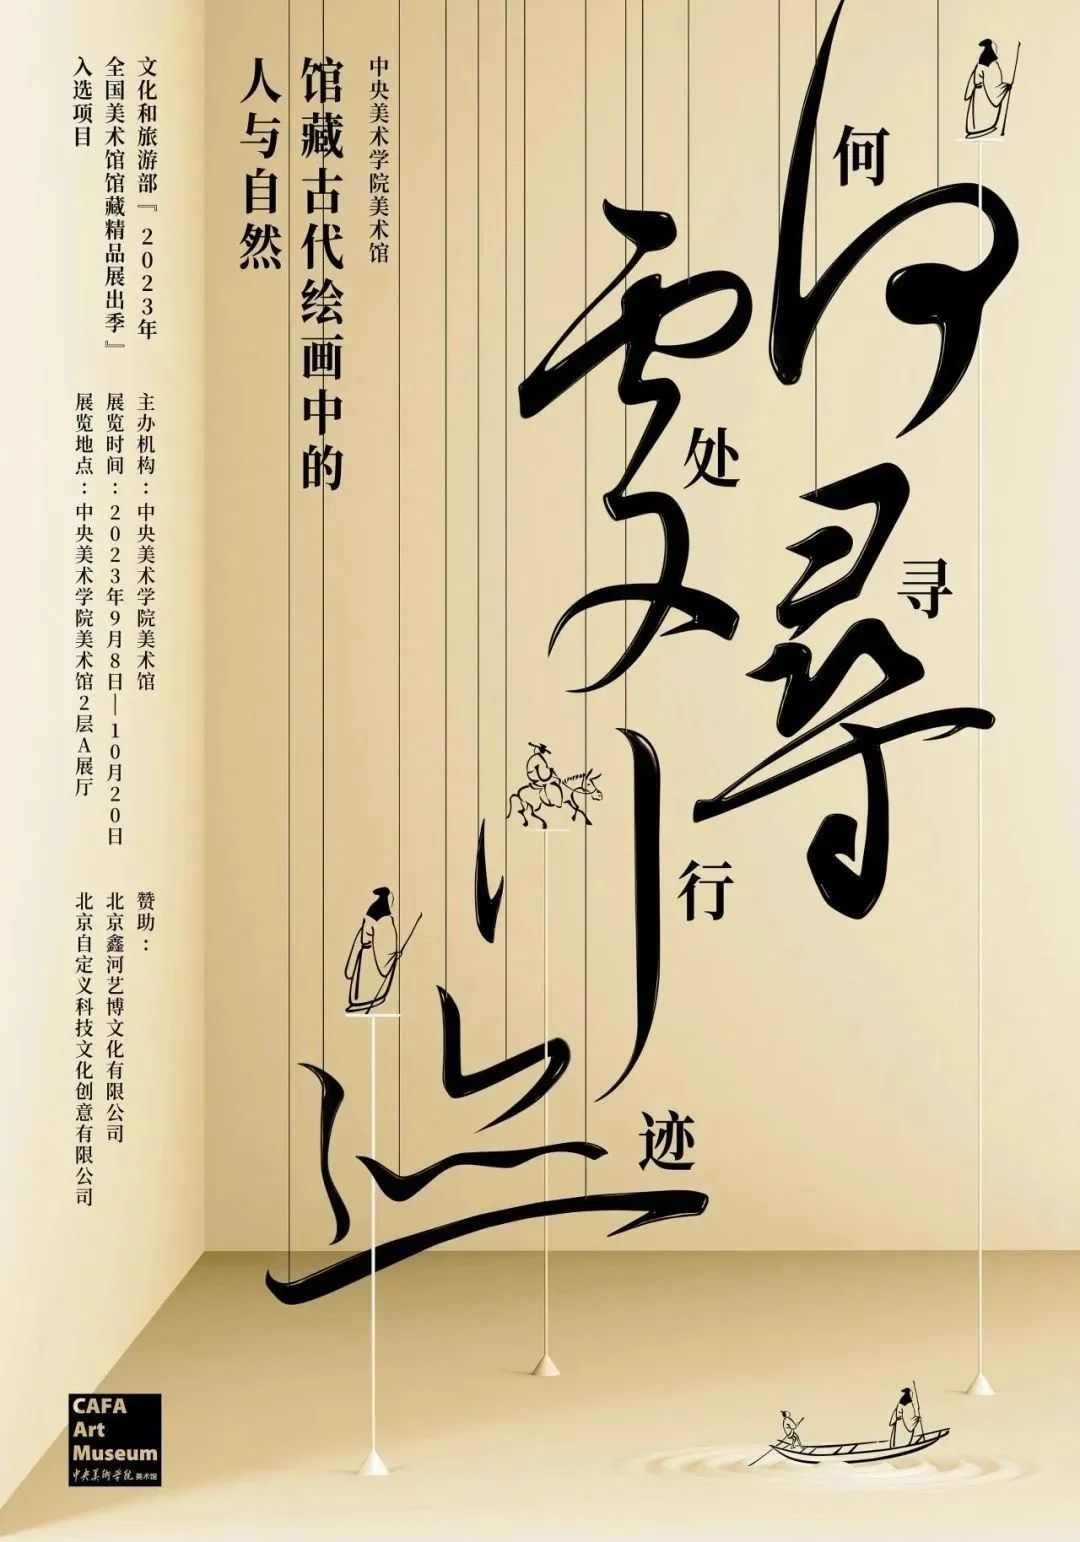 何處尋行迹
何处寻行迹
中央美术学院美术馆
馆藏古代绘画中的
人与自然
文化和旅游部『2023年
全国美术馆馆藏精品展出季』
入选项目
主办机构：中央美术学院美术馆
展览时间：2023年9月8日—10月20日
展览地点：中央美术学院美术馆2层A展厅
赞助：
北京鑫河艺博文化有限公司
北京自定义科技文化创意有限公司
CAFA
Art
Museum
中央美術學院美术馆